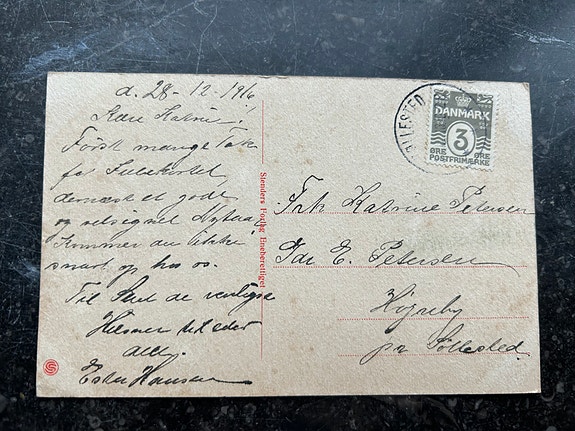 d. 28-12-1916
Kære Katrine!
Først mange Tak
for Julekortet
dernæst et godt
og velsignet Nytaar
Kommer du ikke
snart op hos os.
Til Slut de venligste
Hilsner til eder
alle.
Ester Hansen
Stenders Forlag Eneberettiget
LLESTED
DANMARK
3
ØRE ØRE
POSTFRIMÆRKE
Frk Katrine Petersen
E. Petersen
Højreby
pr Søllested.
S